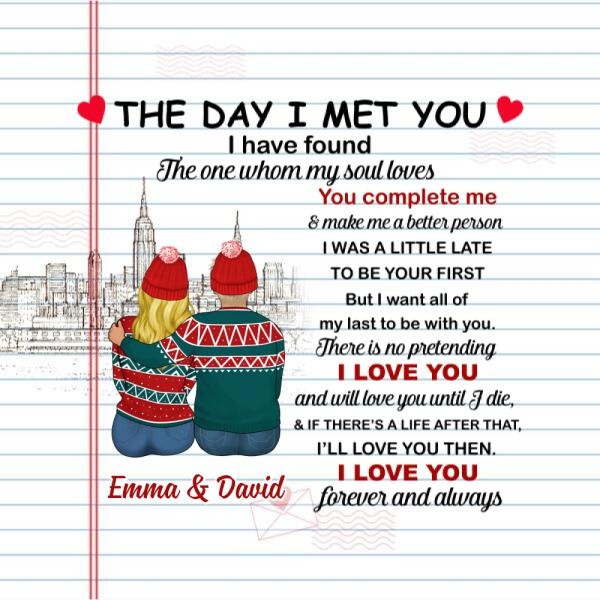 THE DAY I MET YOU
I have found
The one whom my soul loves
You complete me
& make me a better person
I WAS A LITTLE LATE
TO BE YOUR FIRST
But I want all of
my last to be with you.
There is no pretending
I LOVE YOU
and will love you until I die,
& IF THERE'S A LIFE AFTER THAT,
I'LL LOVE YOU THEN.
I LOVE YOU
forever and always
Emma & David